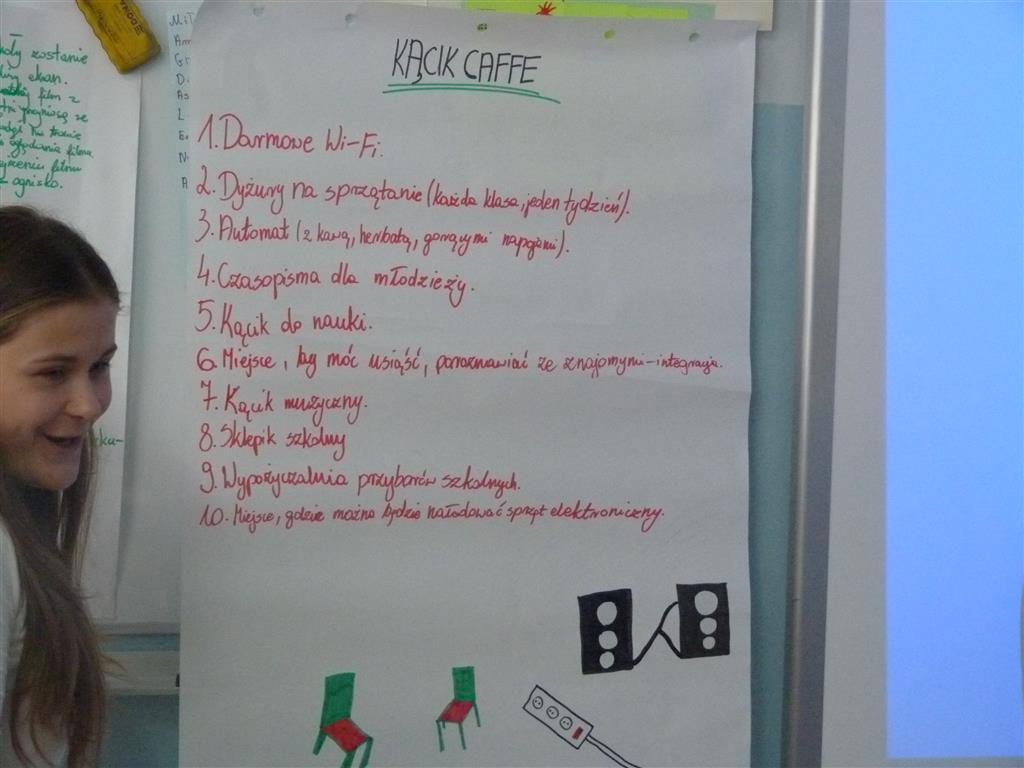 KĄCIK CAFFE
1. Darmowe Wi-Fi.
2. Dyżury na sprzątanie (każda klasa, jeden tydzień).
3. Automat (z kawą, herbatą, gorącymi napojami).
4. Czasopisma dla młodzieży.
5. Kącik do nauki.
6. Miejsce, by móc usiąść, porozmawiać ze znajomymi - integracja.
7. Kącik muzyczny.
8. Sklepik szkolny
9. Wypożyczalnia przyborów szkolnych.
10. Miejsce, gdzie można będzie naładować sprzęt elektroniczny.
zostanie
ekan.
film z
ze
oglądania filmu
filmu
ognisko.